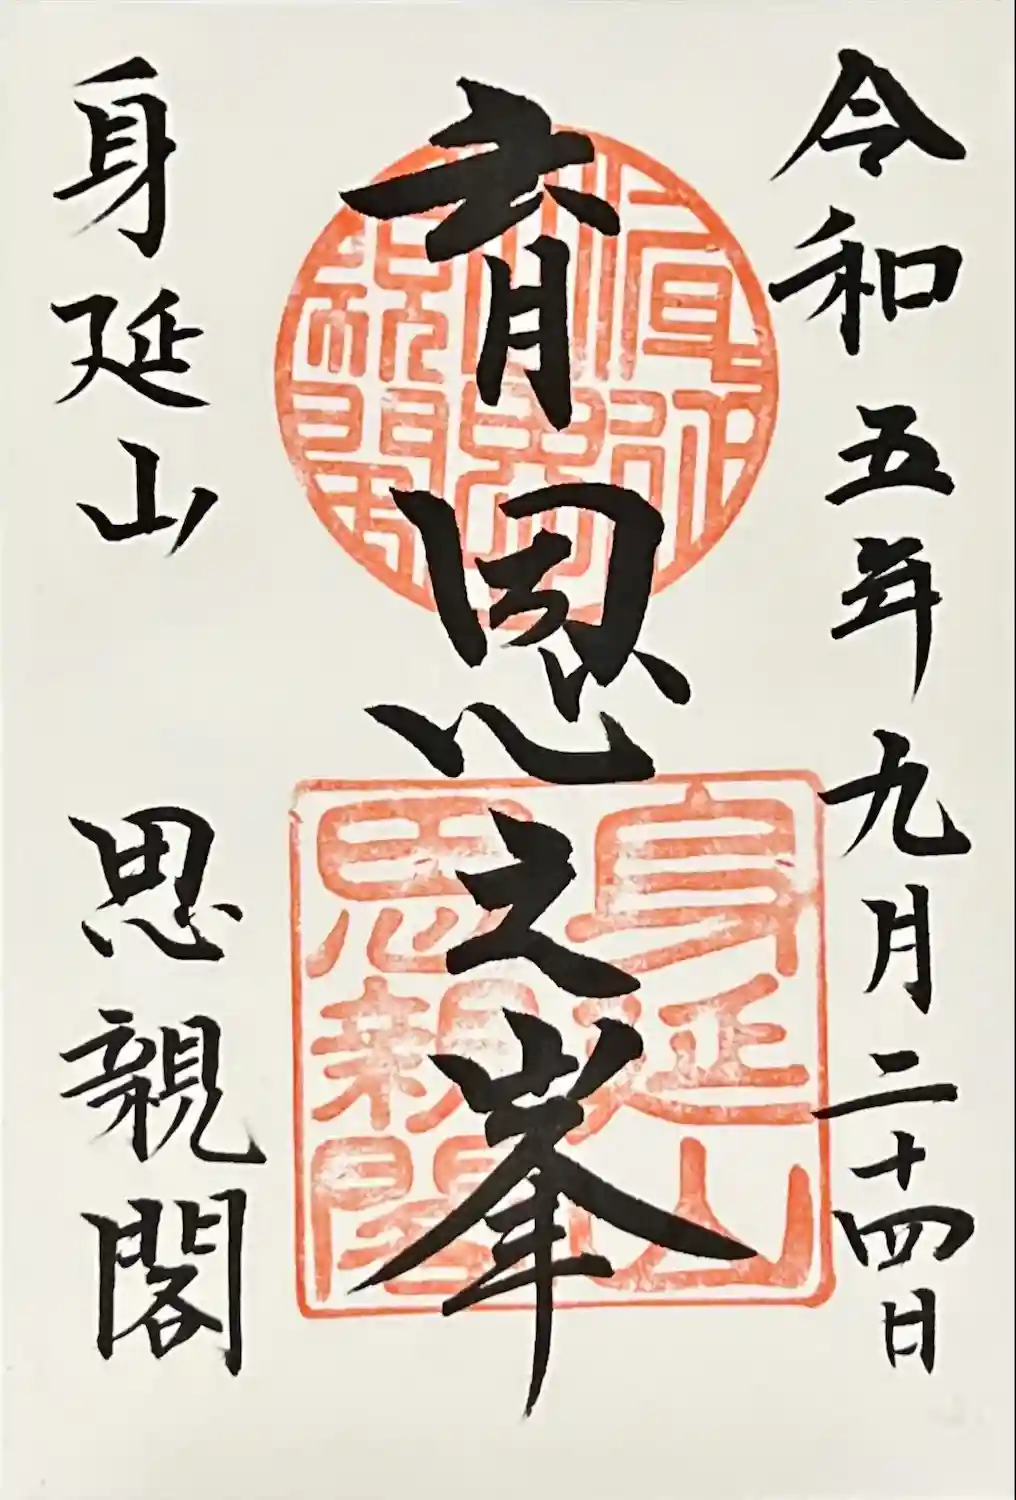 令和五年九月二十四日
育恩之峯
身延山 思親閣
身延山
思親閣